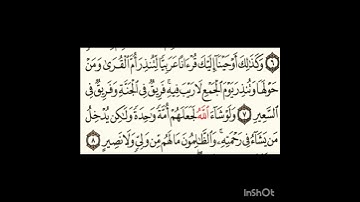 ٦ وَكَذَٰلِكَ أَوْحَيْنَا إِلَيْكَ قُرْءَانًا عَرَبِيًّا لِّتُنذِرَ أُمَّ ٱلْقُرَىٰ وَمَنْ
حَوْلَهَا وَتُنذِرَ يَوْمَ ٱلْجَمْعِ لَا رَيْبَ فِيهِ ۚ فَرِيقٌ فِى ٱلْجَنَّةِ وَفَرِيقٌ فِى
ٱلسَّعِيرِ ٧ وَلَوْ شَآءَ ٱللَّهُ لَجَعَلَهُمْ أُمَّةً وَٰحِدَةً وَلَٰكِن يُدْخِلُ
مَن يَشَآءُ فِى رَحْمَتِهِۦ ۚ وَٱلظَّٰلِمُونَ مَا لَهُم مِّن وَلِىٍّ وَلَا نَصِيرٍ ٨
InShOt